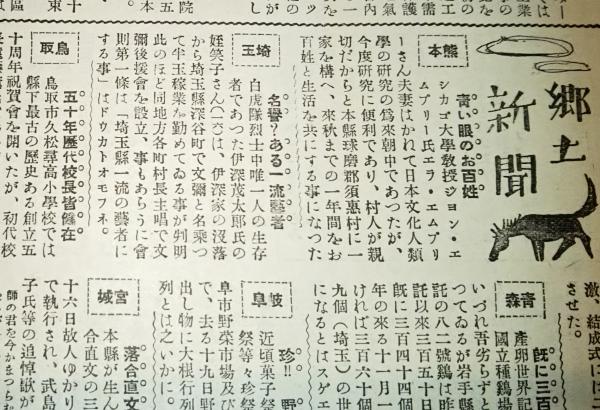 郷土
新聞
熊本
青い眼のお百姓
シカゴ大學教授ジョン・エ
ムブリー氏エラ・エムブリ
ーさん夫妻はかれて日本文化人類
學の研究の爲來朝中であつたが、
今度研究に便利であり、村人が親
切だからと本縣球磨郡須惠村に一
家を構へ、來秋までの一年間をお
百姓と生活を共にする事になつた
埼玉
名譽？ある一流藝者
白虎隊烈士中唯一人の生存
者であつた伊深茂太郎氏の
姪笑子さん(は、伊深家の沒落
から埼玉縣深谷町で文彌と名乘つ
て半玉稼業を勤めてゐる事が判明
此のほど同地方各町村長主唱で文
彌後援會を設立、事もあらうに會
則第一條は「埼玉縣一流の藝者に
する事」はドウカトオモフネ。
鳥取
五十年歴代校長皆健在
鳥取市久松尋高小學校では
縣下最古の歴史ある創立五
十周年祝賀會を開いたが、初代校
激、結成式に二
させた。
青森
既に三百
産卵世界記
國立種鷄場
いづれ吾劣らずと
つてゐるが岩手縣
託の八二號鷄は昨
託以來三百五十日
旣に三百四十四個
年の來る十一月一
ければ三百六十個
九個(埼玉)の世
になるとはスゲエ
岐阜
珍!!野
近頃菓子祭
祭等々珍祭
阜市野菜市場及び
で、去る十九日野
出し物に大根行列
列とは之いかに。
宮城
落合直文
本縣が生ん
合直文の三
十六日故人ゆかり
で執行され、武島
子氏等の追悼歌が
師の君を今かまつら